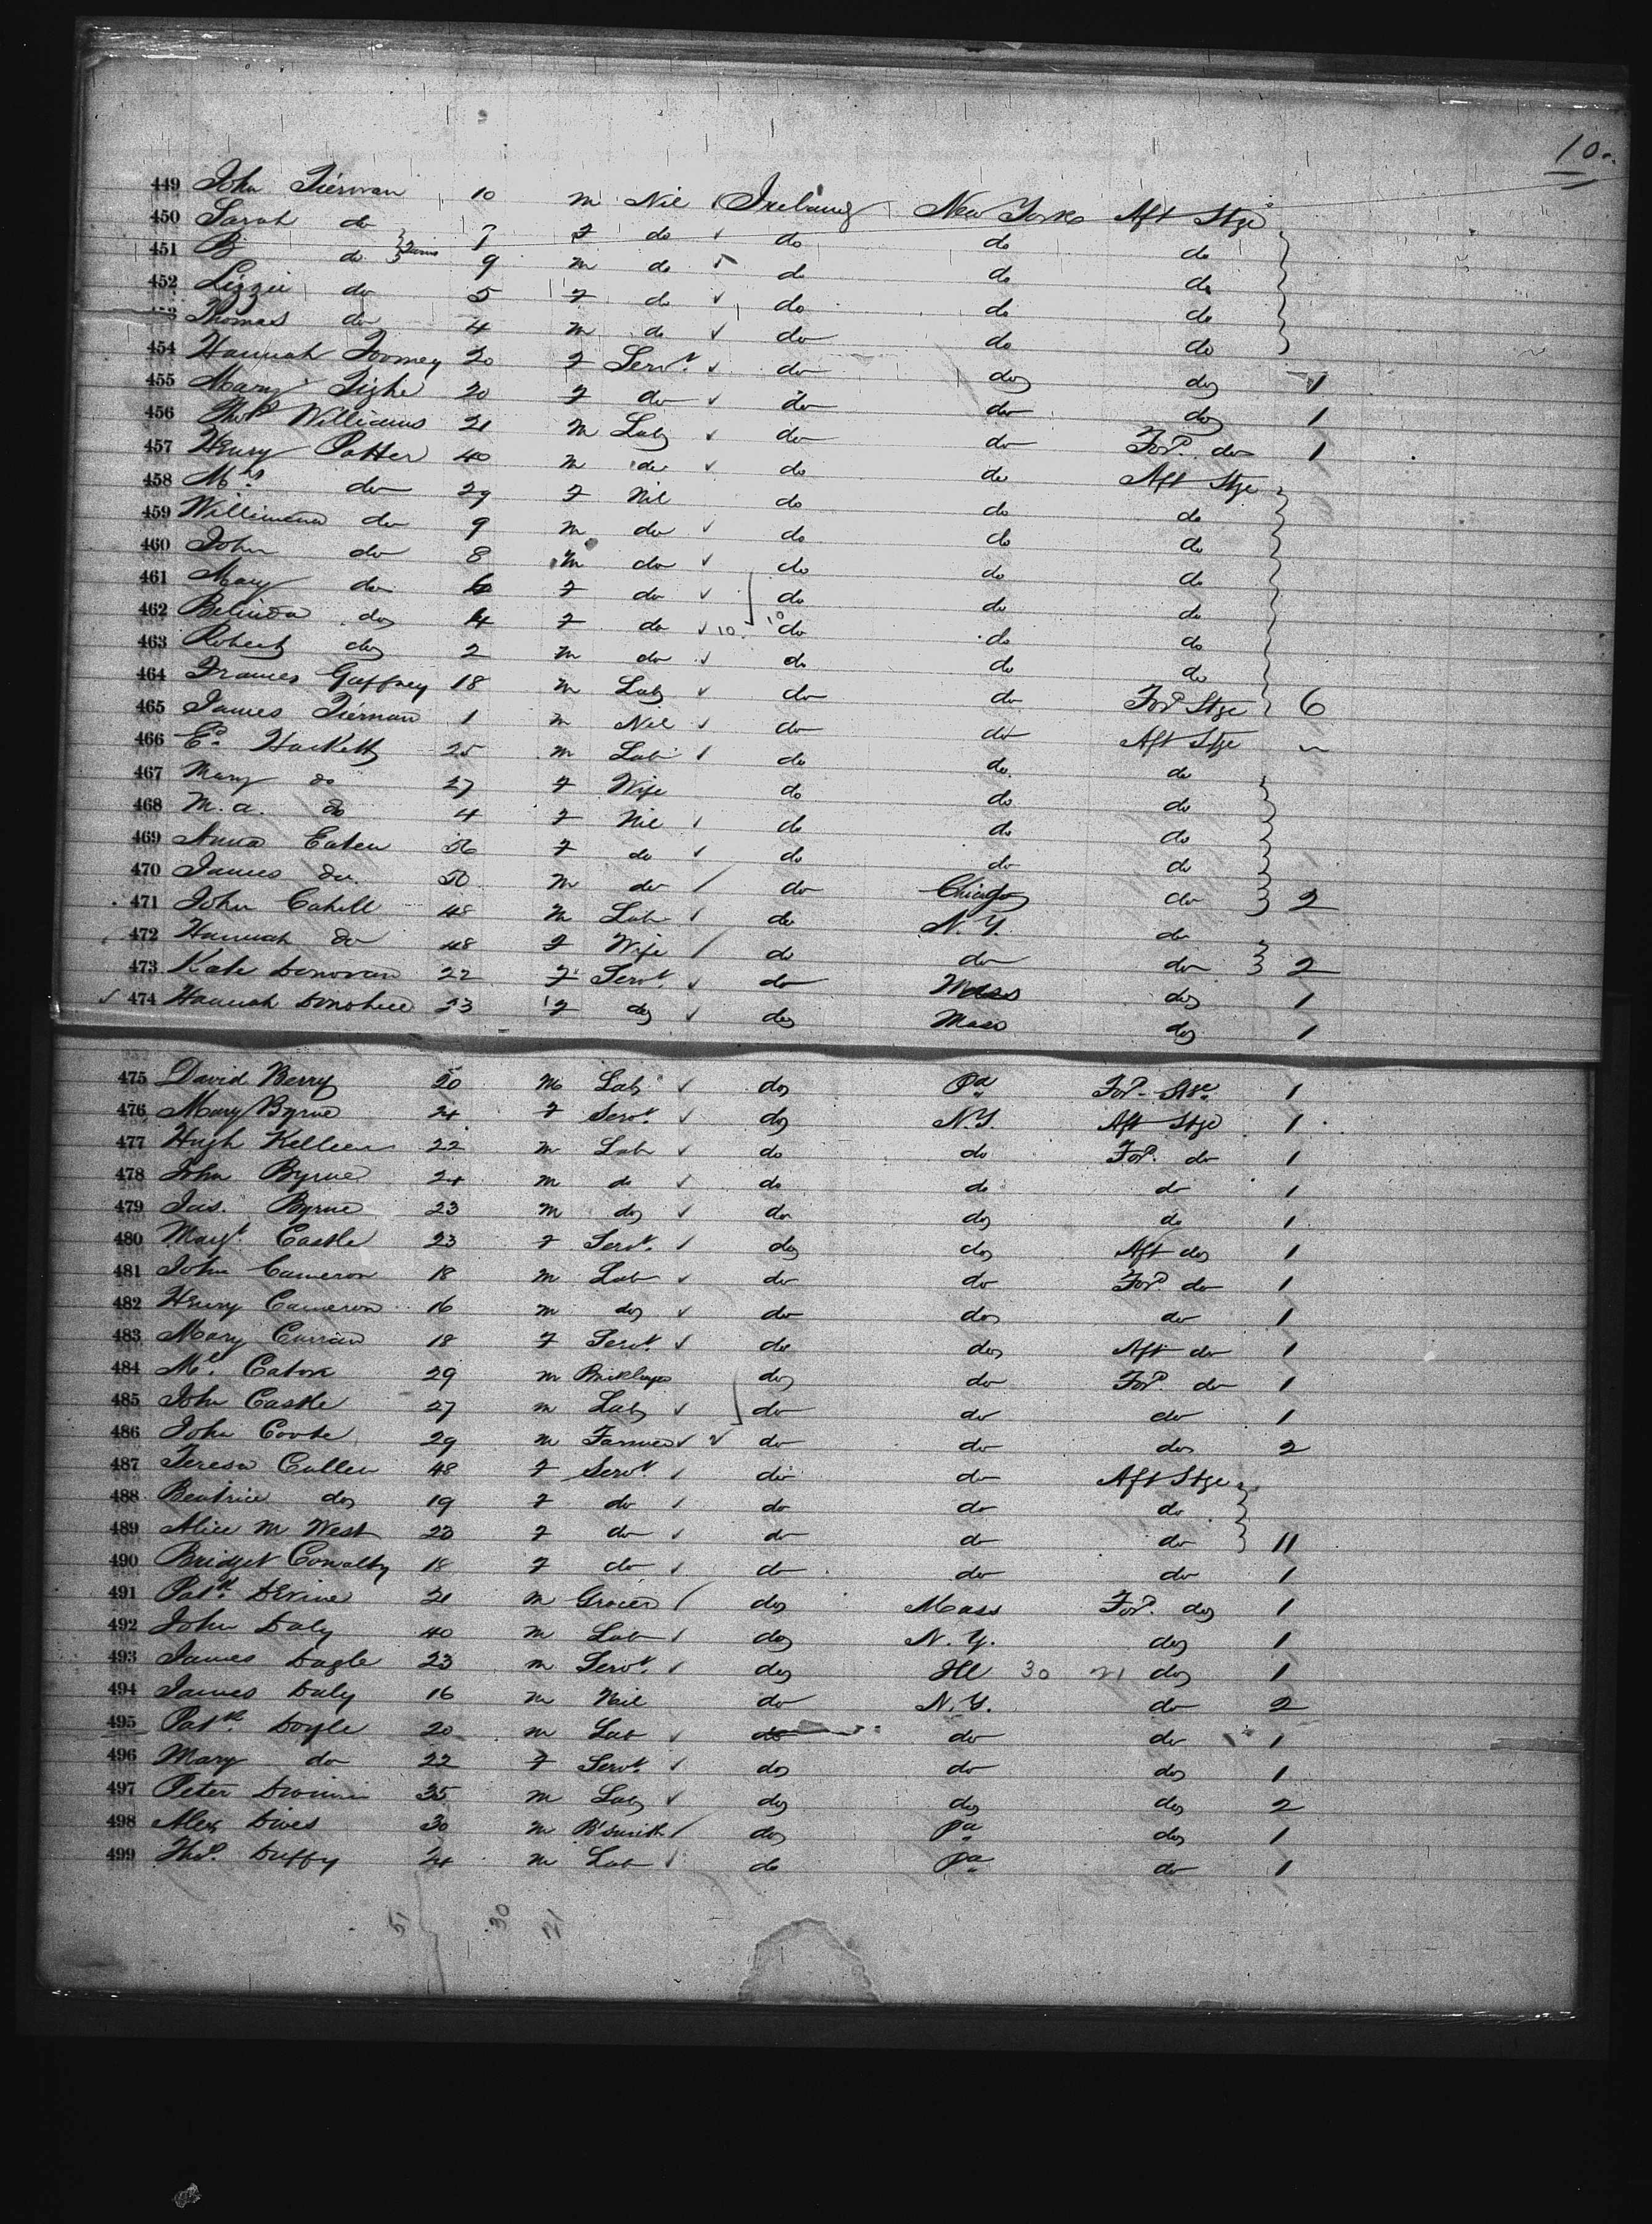 10.
449 John Tiernan 10 m Nil Ireland New York Aft Stge
450 Sarah do 9 f do do do do
451 B do Twins 9 m do do do do
452 Lizzie do 5 f do do do do
453 Thomas do 4 m do do do do
454 Hannah Toomey 20 f Servt. do do do 1
455 Mary Tighe 20 f do do do do 1
456 Thos Williams 21 m Lab do do Ford. do 1
457 Henry Potter 40 m do do do Aft Stge
458 Mrs do 29 f Nil do do do
459 do 9 m do do do do
460 John do 8 m do do do do
461 Mary do 6 f do do do do
462 Belinda do 4 f do 10. 10 do do do
463 Robert do 2 m do do do do
464 Frances Gaffney 18 m Lab do do Ford Stge 6
465 James Tiernan 1 m Nil do do Aft Stge
466 Ed. Hackett 25 m Lab do do do
467 Mary do 27 f Wife do do do
468 M. a. do 4 f Nil do do do
469 Anna Eaten 56 f do do do do
470 James do 50 m do do Chicago do 2
471 John Cahill 48 m Lab do N.Y. do
472 Hannah do 48 f Wife do do do 2
473 Kate Donovan 22 f Servt. do Mass do 1
474 Hannah Donohue 23 f do do Mass do 1
475 David Berry 20 m Lab do Pa Ford. Stge. 1
476 Mary Byrne 24 f Servt. do N.Y. Aft Stge 1
477 Hugh Kelleen 22 m Lab do do Ford. do 1
478 John Byrne 24 m do do do do 1
479 Jas. Byrne 23 m do do do do 1
480 Margt. Castle 23 f Servt. do do Aft do 1
481 John Cameron 18 m Lab do do Ford. do 1
482 Henry Cameron 16 m do do do do 1
483 Mary Curran 18 f Servt. do do Aft do 1
484 Ml. Caton 29 m do do Ford. do 1
485 John Castle 27 m Lab do do do 1
486 John Cooke 29 m Farmer do do do 2
487 Teresa Cullen 48 f Servt. do do Aft Stge
488 Beatrice do 19 f do do do do
489 Alice M West 23 f do do do do 11
490 Bridget Conalty 18 f do do do do 1
491 Patk. Devine 21 m Grocer do Mass Ford. do 1
492 John Daly 40 m Lab do N.Y. do 1
493 James Dagle 23 m Servt. do Ill 30 21 do 1
494 James Daly 16 m Nil do N.Y. do 2
495 Patk. Doyle 20 m Lab do do do 1
496 Mary do 22 f Servt. do do do 1
497 Peter 35 m Lab do do do 2
498 Alex Dives 30 m B'smith do Pa do 1
499 Thos. Duffy 24 m Lab do Pa do 1
51 30 21